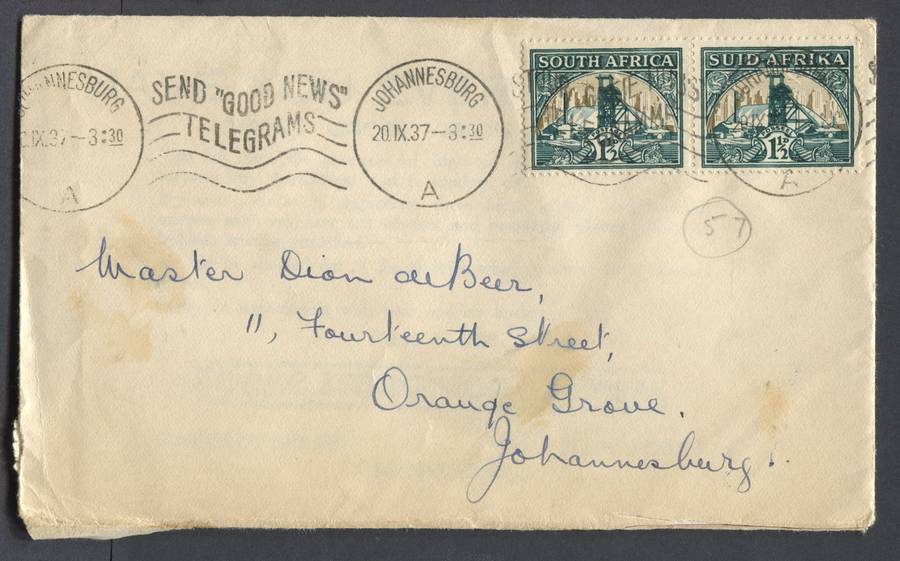 JOHANNESBURG
20.IX.37-3:30
A
SEND "GOOD NEWS"
TELEGRAMS
JOHANNESBURG
20.IX.37-3:30
A
SOUTH AFRICA
POSTAGE
1½
SUID AFRIKA
1½
A
57
Master Dion de Beer,
11, Fourteenth Street,
Orange Grove.
Johannesburg.